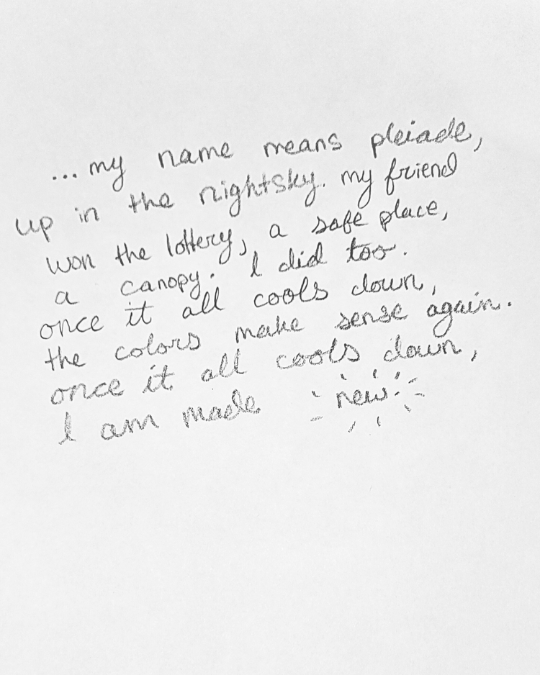 ...my name means pleiade,
up in the nightsky. my friend
won the lottery, a safe place,
a canopy. I did too.
once it all cools down,
the colors make sense again.
once it all cools down,
I am made new